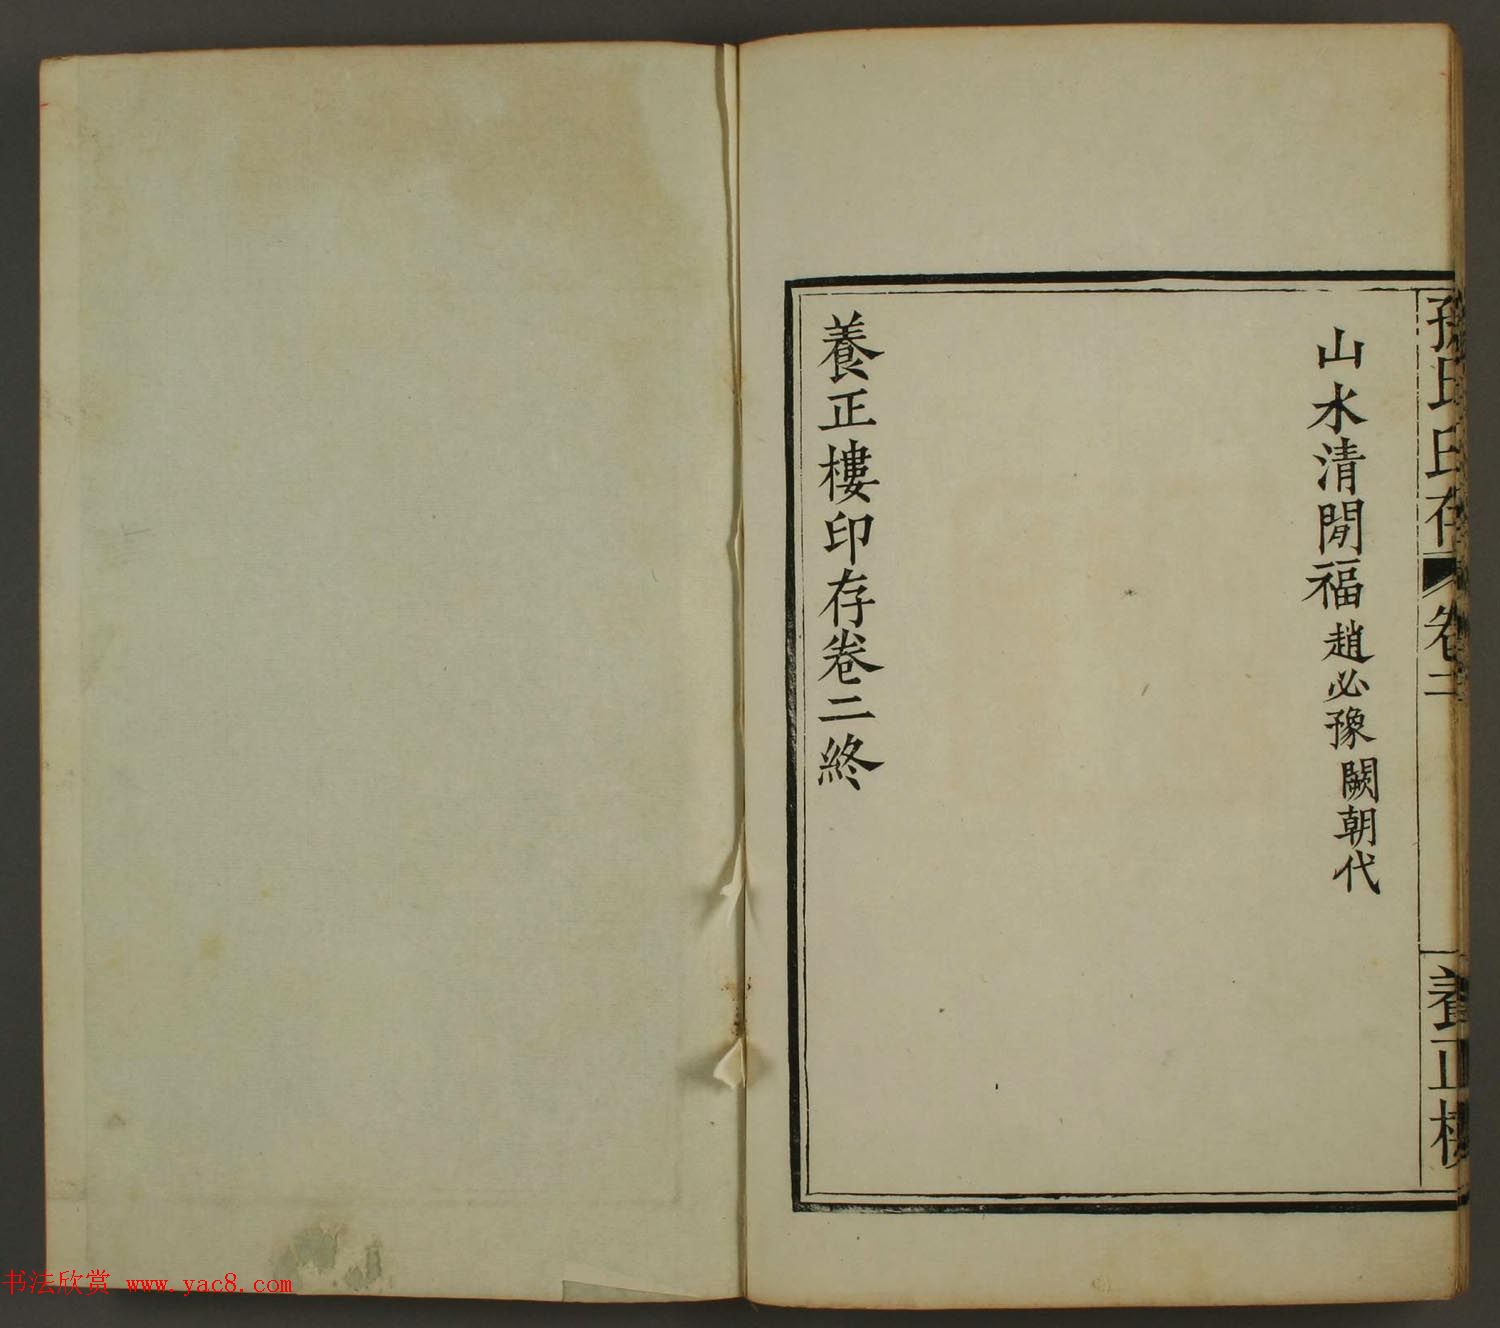 孫氏印存
卷二
養正樓
山水清閒福趙必豫闕朝代
養正樓印存卷二終
书法欣赏 www.yac8.com